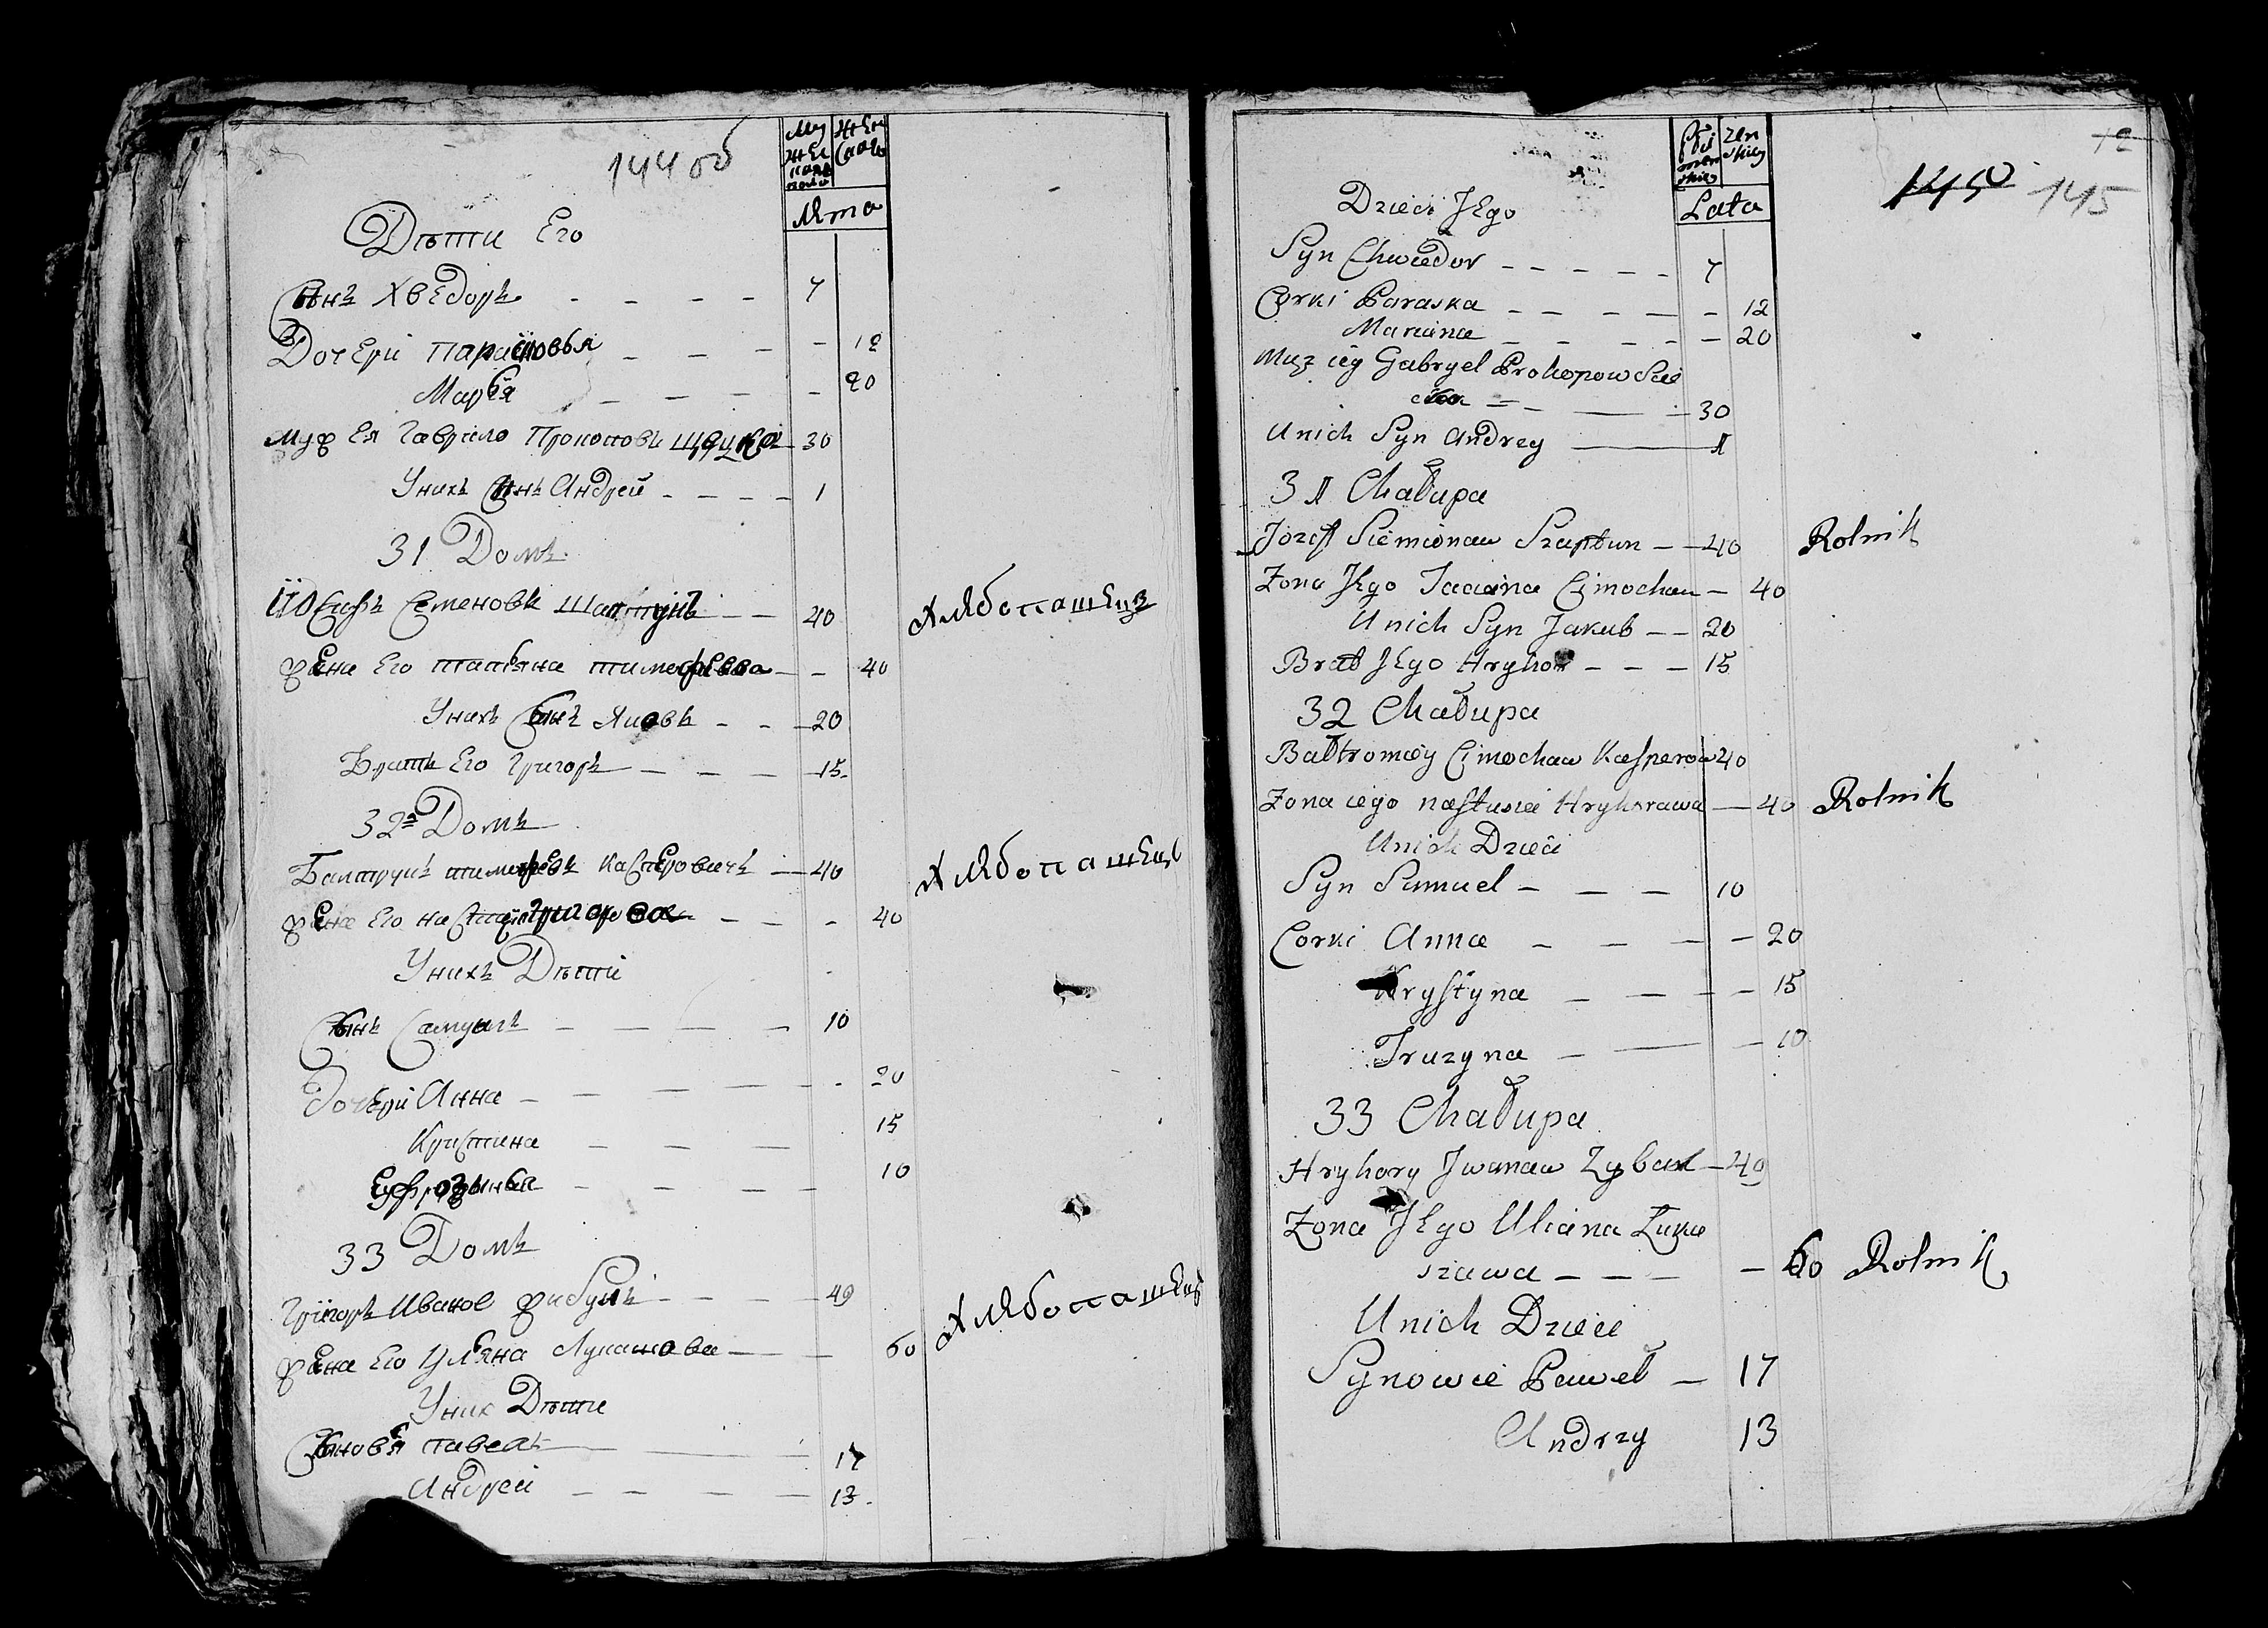 144 об
Мужеска
Женска
Лѣта
Дѣти Его
Сынъ Хведоръ 7
Дочери Парасковья 12
Марья 20
Муж Ея Гаврило Прокоповъ 30
Унихъ Сынъ Андрей 1
31 Домъ
Иосифъ Семеновъ Шаптунъ 40 Хлѣбопашецъ
жена Его татьяна тимофеева 40
Унихъ Сынъ Яковъ 20
Братъ Его Григоръ 15
32й Домъ
тимофеевъ Касперовичъ 40 Хлѣбопашецъ
жена Его Григорова 40
Унихъ Дѣти
Сынъ Самуилъ 10
Дочери Анна 20
Кристина 15
Ефрозинья 10
33 Домъ
Григоръ Иванов Жибулъ 49 Хлѣбопашецъ
жена Его Ульяна Лукашова 60
Уних Дѣти
Сыновья павелъ 17
Андрей 13
145
zen skiey
Lata
Dzieci Jego
Syn Chwiedor 7
Corki Paraska 12
Mariana 20
Mąż iey Gabryel Prokopow 30
Unich Syn Andrey 1
31 Chałupa
Jozef Siemionaw Szaptun 40 Rolnik
Zona Jego Taciana Cimochaw 40
Unich Syn Jakub 20
Brat Jego Hryhor 15
32 Chałupa
Bałtromiey Cimochaw Kasperow 40
Zona iego nastusia Hryhorawa 40 Rolnik
Unich Dzieci
Syn Samuel 10
Corki Anna 20
Krystyna 15
Fruzyna 10
33 Chałupa
Hryhory Jwanaw Zybul 49
Zona Jego Uliana Łuka
szawa 60 Rolnik
Unich Dzieci
Synowie Paweł 17
Andrzy 13